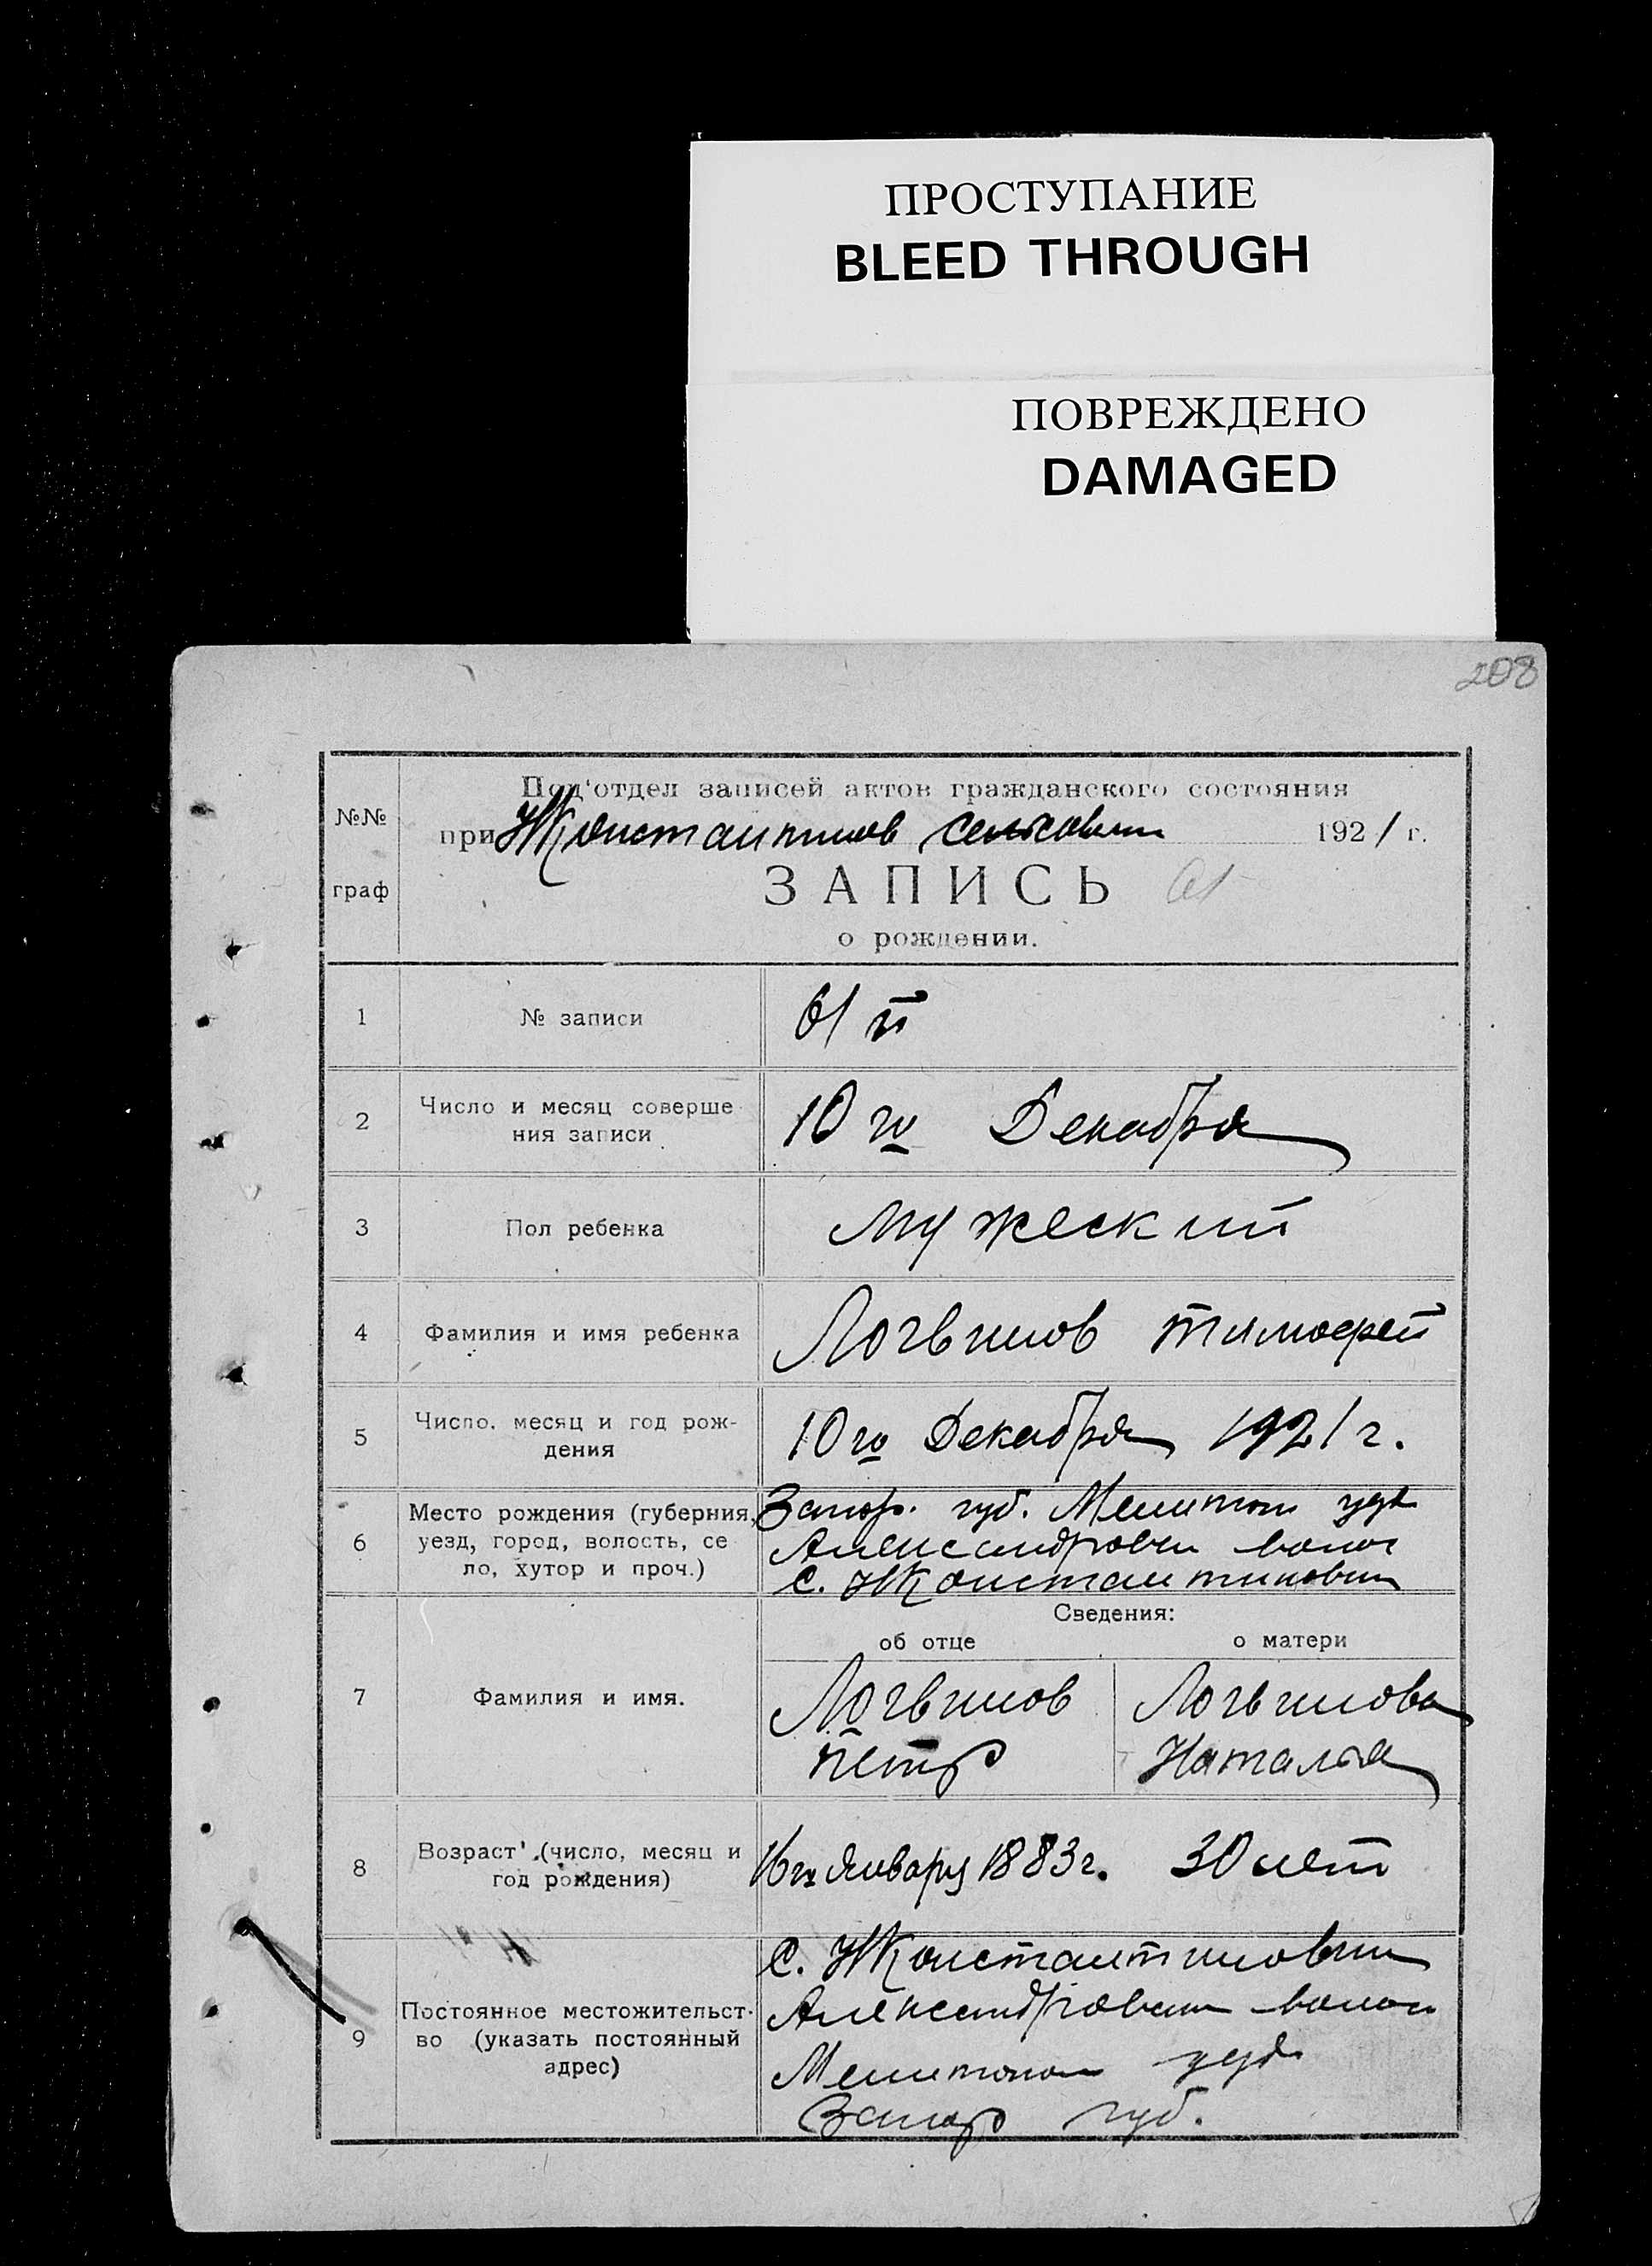 ПРОСТУПАНИЕ
BLEED THROUGH
ПОВРЕЖДЕНО
DAMAGED
208
№№
граф
Под'отдел записей актов гражданского состояния
при Константинов 1921 г.
ЗАПИСЬ 61
о рождении.
1 № записи 61 й
2 Число и месяц соверше
ния записи
10 го Декабря
3 Пол ребенка Мужеский
4 Фамилия и имя ребенка Логвинов Тимофей
5 Число, месяц и год рож-
дения
10 го Декабря 1921 г.
6 Место рождения (губерния,
уезд, город, волость, се
ло, хутор и проч.)
Запор. губ. Мелитоп уезд
Александровск волос
с. Константиновка
Сведения:
об отце о матери
7 Фамилия и имя.
Логвинов Логвинова
Петр Наталья
8 Возраст (число, месяц и
год рождения)
16 го Января 1883 г. 30 лет
9 Постоянное местожительст-
во (указать постоянный
адрес)
С. Константиновки
Александровск волос
Мелитопол уезд
Запор губ.